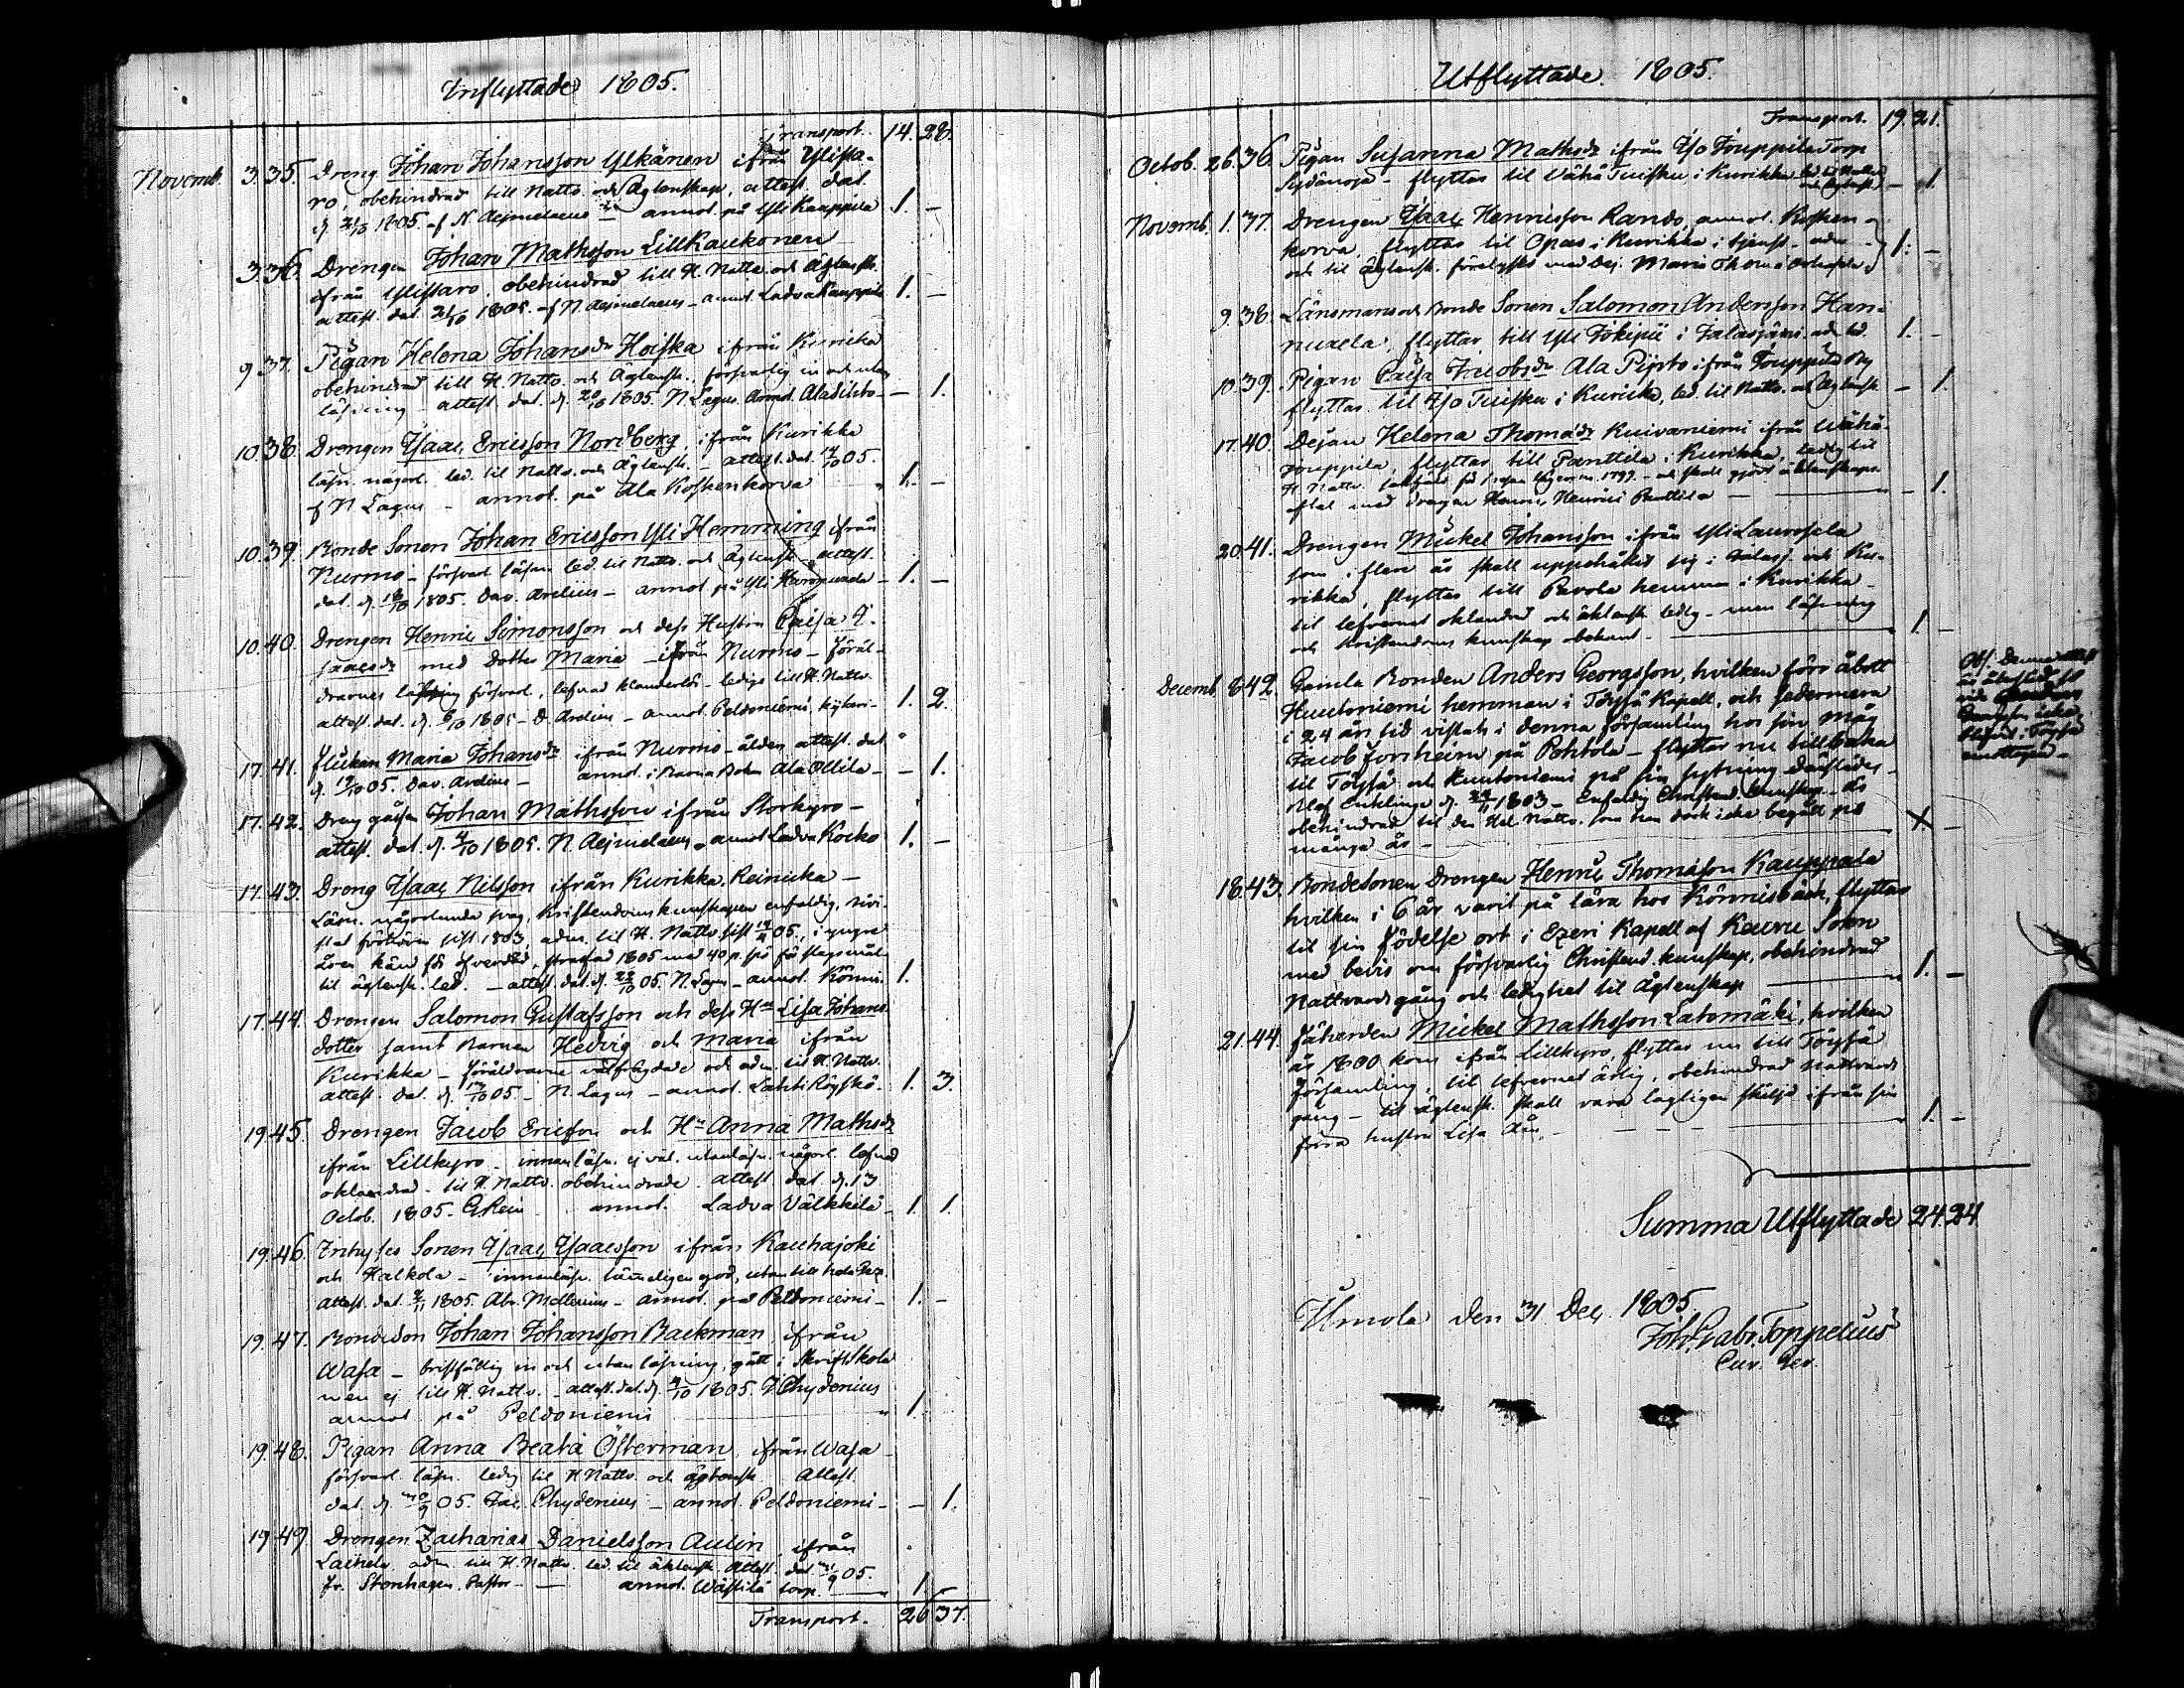 Inflyttade 1805.
Transport. 14. 28.
Novemb. 3. 35. Dreng Johan Johansson Ylkänen ifrån Ylista-
ro, obehindrad till Nattv. och Ägtenskap, attest. dat.
d. 21/10 1805. af N. Aejmelaeus - annot. på Yli Kauppila 1. -
3. 36. Drengen Johan Mathsson LillKaukonen
ifrån Ylistaro, obehindrad till H. Nattv. och Ägtensk.
attest. dat. 21/10 1805. af N. Aejmelaeus - annot. Ladva Kauppila 1. -
9. 37. Pigan Helena Johansdr Hoiska ifrån Kurikka
obehindrad till H. Nattv. och Ägtensk., försvarlig in och utan
läsning - attest. dat. d. 20/10 1805. N. Lagus. Annot. - 1.
10. 38. Drengen Isaac Ericsson Nordberg ifrån Kurikka
läsn. någorl. led. til Nattv. och Ägtensk. - attest. dat. 05.
af N. Lagus - annot. på Ala Koskenkorva 1. -
10. 39. Bonde Sonen Johan Ericsson Yli Hemming ifrån
Nurmo - försvarl. läsn. led. til Nattv. och Ägtensk. attest.
dat. d. 18/10 1805. Dav. Arelius - annot. på Yli 1. -
10. 40. Drengen Henric Simonsson och dess Hustru Caisa I-
saacsdr med dotter Maria - ifrån Nurmo - Föräl-
drarnes läsning försvarl., lefnad klanderlös - lediga till H. Nattv.
attest. dat. d. 1805 - D. Arelius - annot. Peldoniemi 1. 2.
17. 41. Flickan Maria Johansdr ifrån Nurmo - ålder attest. dat.
d. 05. Dav. Arelius - annot. i Barna Boken Ala Ollila - - 1.
17. 42. Dreng gåssen Johan Mathsson ifrån Storkyro -
attest. dat. d. 4/10 1805. N. Aejmelaeus - annot Ladva Kocko 1. -
17. 43. Dreng Isaac Nilsson ifrån Kurikka. Reinicka -
Läsn. någorlunda svag, Kristendomskunskapen enfaldig,
1803, adm. til H. Nattv. sist 05., i yngre
åren känd för öfverdåd, straffad 1805 med 40 p. spö för slagsmål -
til ägtensk. led. - attest. dat. d. 05. N. Lagus - annot. Könni. 1.
17. 44. Drengen Salomon Gustafsson och dess Hu Lisa Johans
dotter samt Barnen Hedvig och Maria ifrån
Kurikka - Föräldrarne välfrägdade och adm. til H. Nattv.
attest. dat. d. 05. - N. Lagus - annot. Lahti Röyskö - 1. 3.
19. 45. Drengen Jacob Ericsson och Hu Anna Mathsdr
ifrån Lillkyro - innanläsn. ej väl. utanläsn. någorl. lefnad
oklandrad - til H. Nattv. obehindrade. attest. dat. d. 13
Octob. 1805. G Rein - annot. Ladva Välkkilä - 1. 1.
19. 46. Inhyses Sonen Isaac Isaacsson ifrån Kauhajoki
och Halkola - innanläsn. tämeligen god, utan till
attest. dat. 1805. Abr. Mellenius - annot. på Peldoniemi - 1. -
19. 47. Bondeson Johan Johansson Backman, ifrån
Wasa - bristfällig in och utan läsning, gått i Skriftskola
men ej till H. Nattv. - attest. dat. d. 1805. J Chydenius
annot. på Peldoniemi 1. -
19. 48. Pigan Anna Beata Österman, ifrån Wasa
försvarl. läsn. ledig til H Nattv. och ägtensk. Attest.
dat. d. 05. Jac. Chydenius - annot. Peldoniemi - - 1.
19. 49. Drengen Zacharias Danielsson Aulin ifrån
Laihela adm. till H. Nattv. led. til äktensk. Attest. dat. 05.
Fr. Stenhagen. Pastor. - annot. Wästilä torp 1.
Transport. 26 37.
Utflyttade 1805.
Transport. 19. 21.
Octob. 26. 36. Pigan Susanna Mathsdr ifrån Iso Jouppila Torp
Sydänoja - flyttar til Vähä Tuisku i Kurikka led. til Nattv.
och Ägtensk. - 1.
Novemb. 1. 37. Drengen Isaac Henricsson Rando, annot. Kosken-
korva, flyttar til Opas i Kurikka i tjenst - adm. -
och til ägtensk. förelyst med Dej. Maria Thomæ 1. -
9. 38. Länsmans och Bonde Sonen Salomon Andersson Han-
nuxela, flyttar till Yli Jokipii i Jalasjärvi adm. led. 1. -
10. 39. Pigan Caisa Jacobsdr Ala Pijrto ifrån Jouppila By
flyttar til Iso Tuisku i Kurikka, led. til Nattv. och Ägtensk - 1.
17. 40. Dejan Helena Thomædr Kuivaniemi ifrån Wähä-
Jouppila, flyttar till Panttila i Kurikka, ledig til
H Nattv. 1797. - och skall gjort äktenskaps
aftal med drengen Henric Henrici Panttila - 1.
20. 41. Drengen Mickel Johansson ifrån Yli Laurosela
som i flere år skall uppehållit sig i Jalasj. och Ku-
rikka, flyttar till Pavola hemman i Kurikka -
til lefvernet oklandrad och äktensk. ledig - men läsning
och kristendoms kunskap obekant - 1. -
Decemb. 8. 42. Gamla Bonden Anders Georgsson, hvilken förr åbott
Kuutoniemi hemman i Töysä Kapell, och sedermera
i 24 års tid vistats i denna församling hos sin måg
Jacob Forsheim på Pohtola - flyttar nu tillbaka
til Töysä och Kuutoniemi på sin sytning därstädes -
d. 1803 - Enfaldig Christend. kunskap - är
obehindrad til den Hel. Nattv. som han dock icke begått på
många år - X -
Obs. Denna attest
är
Georgsson icke
blifvit i Töysä
emottagen -
18. 43. Bondesonen Drengen Henric Thomasson Kauppala
hvilken i 6 år varit på lära hos Könnisbäck, flyttar
til sin födelse ort i Ezeri Kapell af Keuru Sokn
med bevis om försvarlig Christend. kunskap, obehindrad
Nattvards gång och ledighet til Ägtenskap - 1. -
21. 44. Jäharden Mickel Mathsson Latomäki, hvilken
år 1800 kom ifrån Lillkyro, flyttar nu till Töysä
församling, til lefvernet ärlig, obehindrad Nattvards
gång - til ägtensk. skall vara lagligen skiljd ifrån sin
förra hustru Lisa - 1. -
Summa Utflyttade 24 24
Ilmola den 31 Dec. 1805.
Joh. Gabr. Toppelius
Cur. ger.